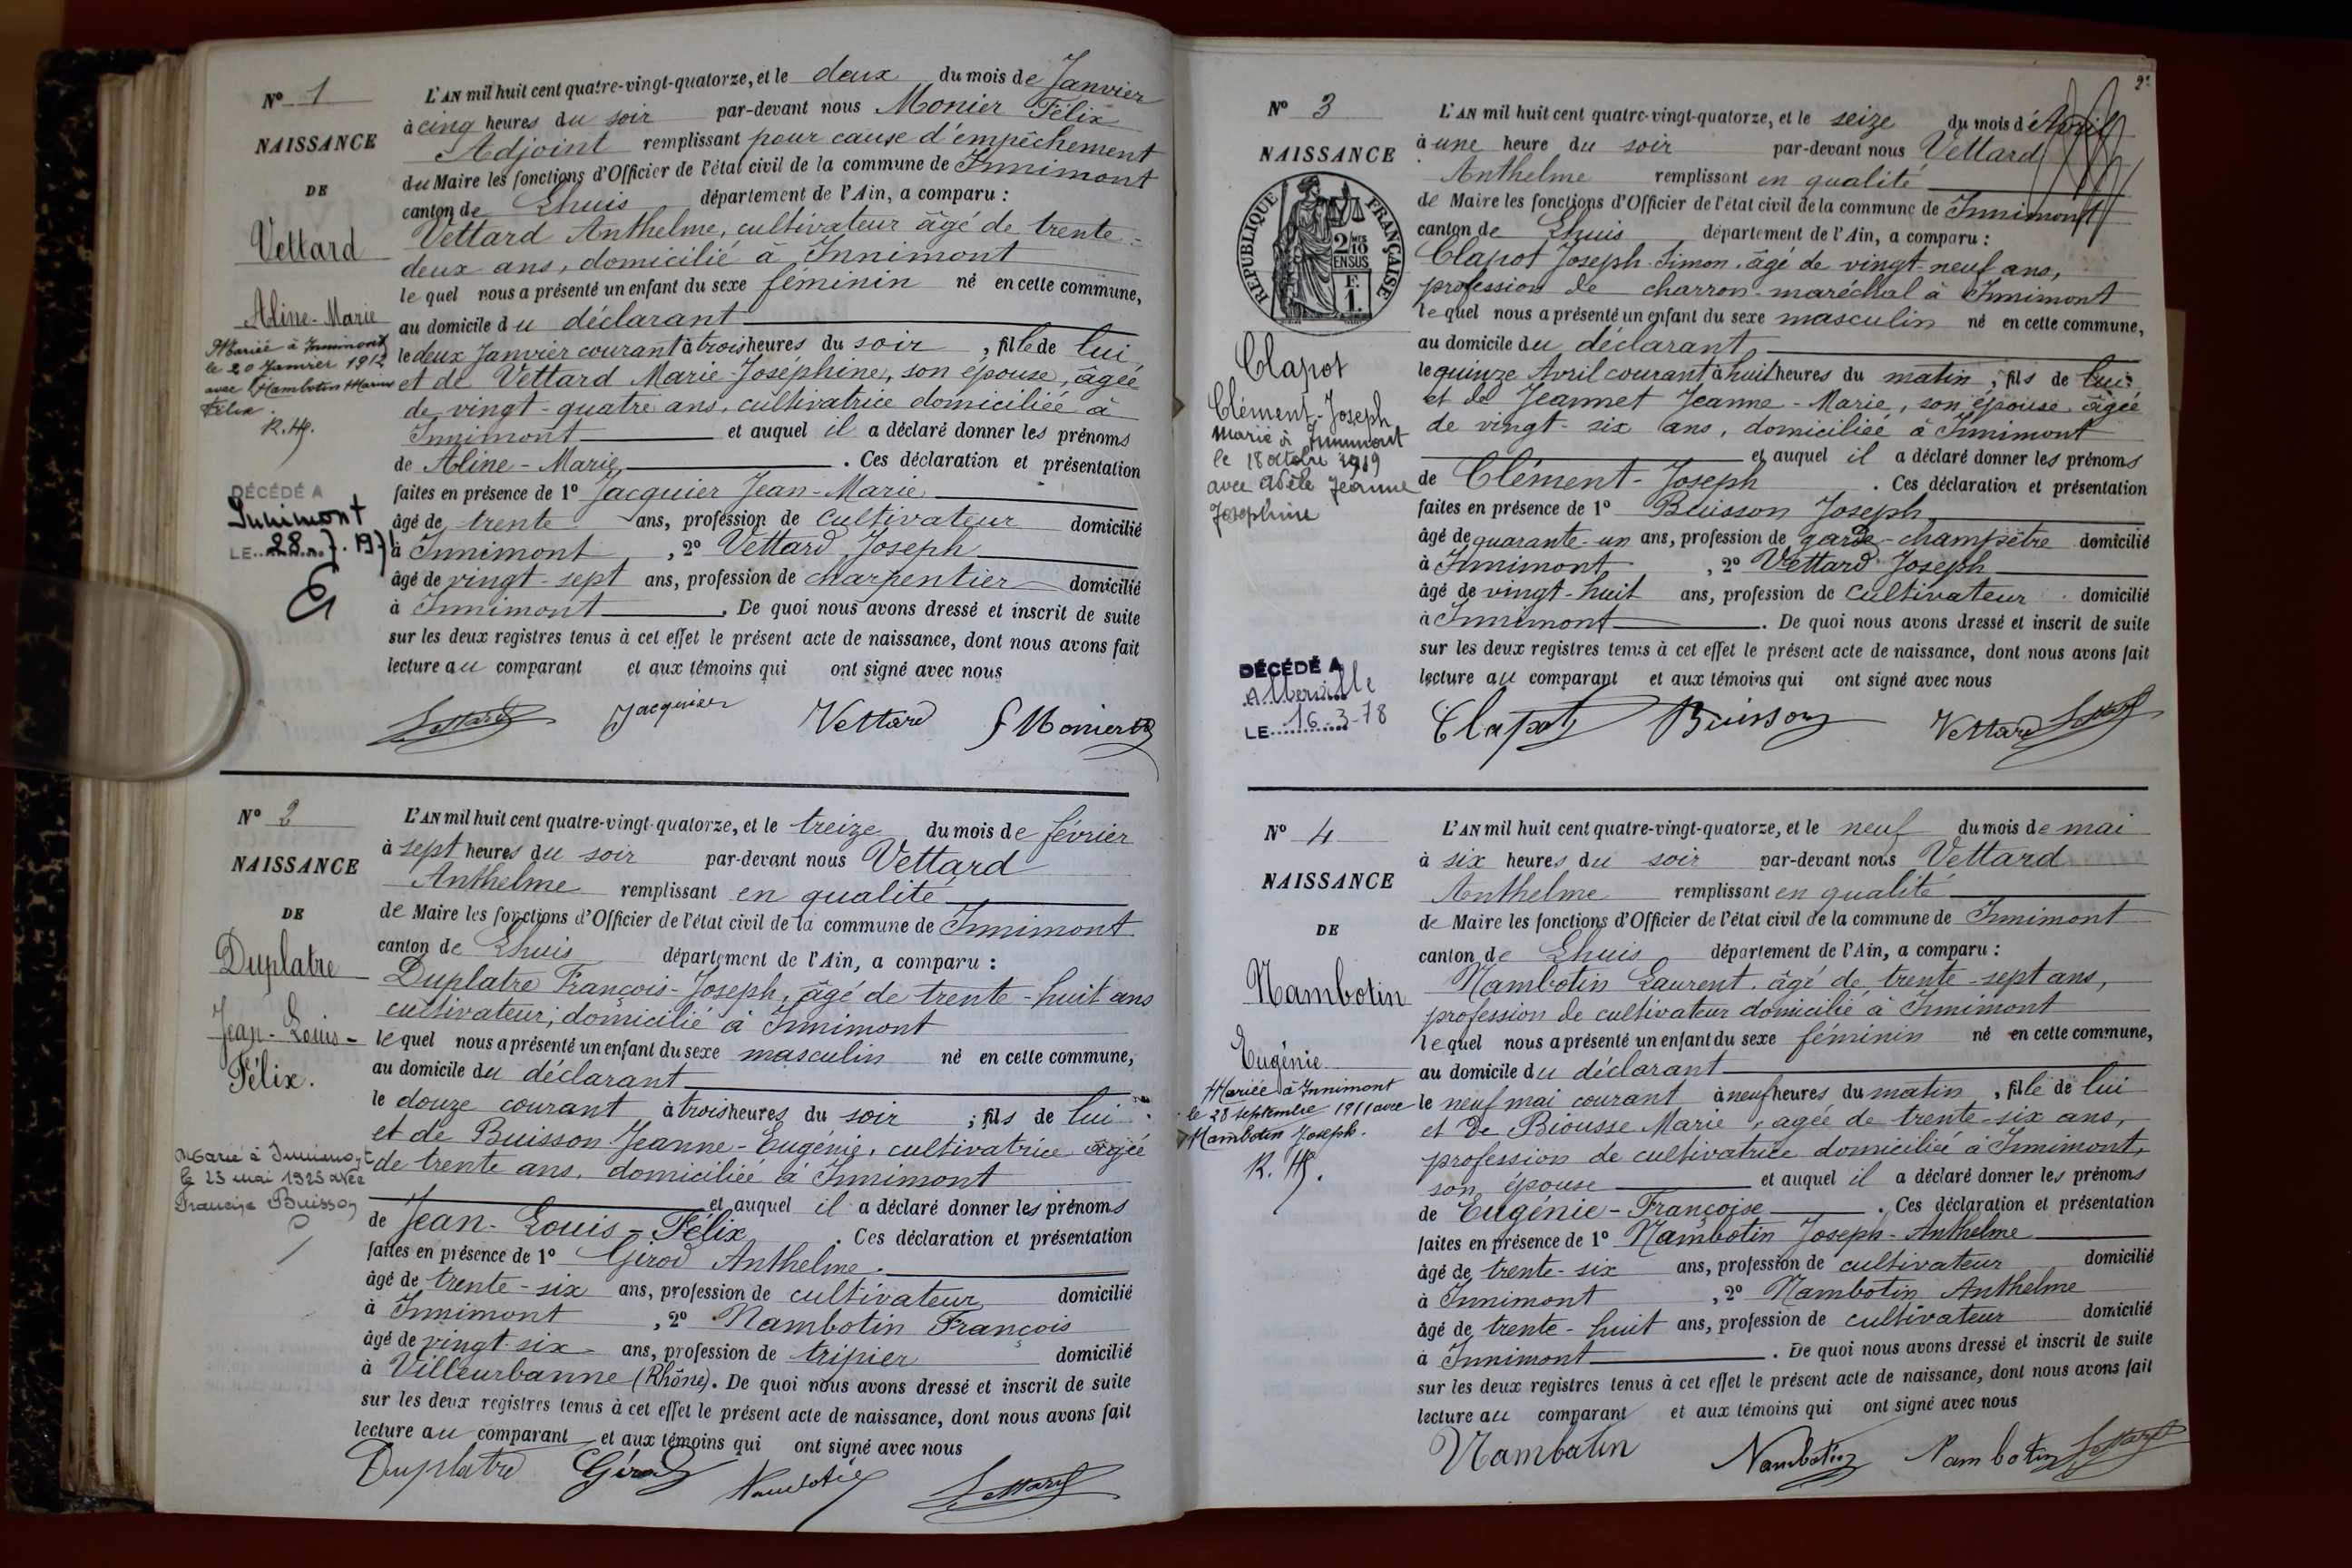 Nº 1
NAISSANCE
DE
Vettard
Aline-Marie
Mariée à Innimont
le 20 Janvier 1912
avec Nambotin Marius
Félix.
R.H.
DÉCÉDÉ A
Innimont
LE 28.7.1971
L'AN mil huit cent quatre-vingt-quatorze, et le deux du mois de Janvier
à cinq heures du soir par-devant nous Monier Félix
Adjoint remplissant pour cause d'empêchement
du Maire les fonctions d'Officier de l'état civil de la commune de Innimont
canton de Lhuis département de l'Ain, a comparu :
Vettard Anthelme, cultivateur âgé de trente-
deux ans, domicilié à Innimont
lequel nous a présenté un enfant du sexe féminin né en cette commune,
au domicile du déclarant
le deux Janvier courant à trois heures du soir, fille de lui
et de Vettard Marie-Joséphine, son épouse, âgée
de vingt-quatre ans, cultivatrice domiciliée à
Innimont et auquel il a déclaré donner les prénoms
de Aline-Marie. Ces déclaration et présentation
faites en présence de 1º Jacquier Jean-Marie
âgé de trente ans, profession de cultivateur domicilié
à Innimont, 2º Vettard Joseph
âgé de vingt-sept ans, profession de charpentier domicilié
à Innimont. De quoi nous avons dressé et inscrit de suite
sur les deux registres tenus à cet effet le présent acte de naissance, dont nous avons fait
lecture au comparant et aux témoins qui ont signé avec nous
Vettard Jacquier Vettard F Monier
Nº 2
NAISSANCE
DE
Duplatre
Jean-Louis-
Félix.
Marié à Innimont
le 23 mai 1925 avec
Buisson
L'AN mil huit cent quatre-vingt-quatorze, et le treize du mois de février
à sept heures du soir par-devant nous Vettard
Anthelme remplissant en qualité
de Maire les fonctions d'Officier de l'état civil de la commune de Innimont
canton de Lhuis département de l'Ain, a comparu :
Duplatre François-Joseph, âgé de trente-huit ans
cultivateur, domicilié à Innimont
lequel nous a présenté un enfant du sexe masculin né en cette commune,
au domicile du déclarant
le douze courant à trois heures du soir ; fils de lui
et de Buisson Jeanne-Eugénie, cultivatrice âgée
de trente ans, domiciliée à Innimont
et auquel il a déclaré donner les prénoms
de Jean-Louis-Félix. Ces déclaration et présentation
faites en présence de 1º Girod Anthelme.
âgé de trente-six ans, profession de cultivateur domicilié
à Innimont, 2º Nambotin François
âgé de vingt-six ans, profession de tripier domicilié
à Villeurbanne (Rhône). De quoi nous avons dressé et inscrit de suite
sur les deux registres tenus à cet effet le présent acte de naissance, dont nous avons fait
lecture au comparant et aux témoins qui ont signé avec nous
Duplatre Girod Nambotin Vettard
2e
Nº 3
NAISSANCE
RÉPUBLIQUE FRANÇAISE
2/10 EN SUS
F. 1.
Clapot
Clément-Joseph
Marié à Innimont
le 18 octobre 1919
avec Jeanne
Joséphine
DÉCÉDÉ A
Albertville
LE 16-3-78
L'AN mil huit cent quatre-vingt-quatorze, et le seize du mois d'Avril
à une heure du soir par-devant nous Vettard
Anthelme remplissant en qualité
de Maire les fonctions d'Officier de l'état civil de la commune de Innimont
canton de Lhuis département de l'Ain, a comparu :
Clapot Joseph-Simon, âgé de vingt-neuf ans,
profession de charron-maréchal à Innimont
lequel nous a présenté un enfant du sexe masculin né en cette commune,
au domicile du déclarant,
le quinze Avril courant à huit heures du matin, fils de lui
et de Jeannet Jeanne-Marie, son épouse, âgée
de vingt-six ans, domiciliée à Innimont
et auquel il a déclaré donner les prénoms
de Clément-Joseph. Ces déclaration et présentation
faites en présence de 1º Buisson Joseph
âgé de quarante-un ans, profession de garde-champêtre domicilié
à Innimont, 2º Vettard Joseph
âgé de vingt-huit ans, profession de cultivateur domicilié
à Innimont. De quoi nous avons dressé et inscrit de suite
sur les deux registres tenus à cet effet le présent acte de naissance, dont nous avons fait
lecture au comparant et aux témoins qui ont signé avec nous
Clapot Buisson Vettard Vettard
Nº 4
NAISSANCE
DE
Nambotin
Eugénie
Mariée à Innimont
le 28 septembre 1911 avec
Nambotin Joseph.
R.H.
L'AN mil huit cent quatre-vingt-quatorze, et le neuf du mois de mai
à six heures du soir par-devant nous Vettard
Anthelme remplissant en qualité
de Maire les fonctions d'Officier de l'état civil de la commune de Innimont
canton de Lhuis département de l'Ain, a comparu :
Nambotin Laurent, âgé de trente-sept ans,
profession de cultivateur domicilié à Innimont
lequel nous a présenté un enfant du sexe féminin né en cette commune,
au domicile du déclarant
le neuf mai courant à neuf heures du matin, fille de lui
et de Biousse Marie, agée de trente-six ans,
profession de cultivatrice domiciliée à Innimont,
son épouse et auquel il a déclaré donner les prénoms
de Eugénie-Françoise. Ces déclaration et présentation
faites en présence de 1º Nambotin Joseph-Anthelme
âgé de trente-six ans, profession de cultivateur domicilié
à Innimont, 2º Nambotin Anthelme
âgé de trente-huit ans, profession de cultivateur domicilié
à Innimont. De quoi nous avons dressé et inscrit de suite
sur les deux registres tenus à cet effet le présent acte de naissance, dont nous avons fait
lecture au comparant et aux témoins qui ont signé avec nous
Nambotin Nambotin Nambotin Vettard